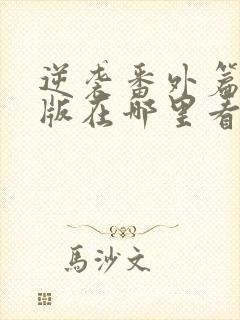 逆袭番外篇
版在哪里看
馬沙文